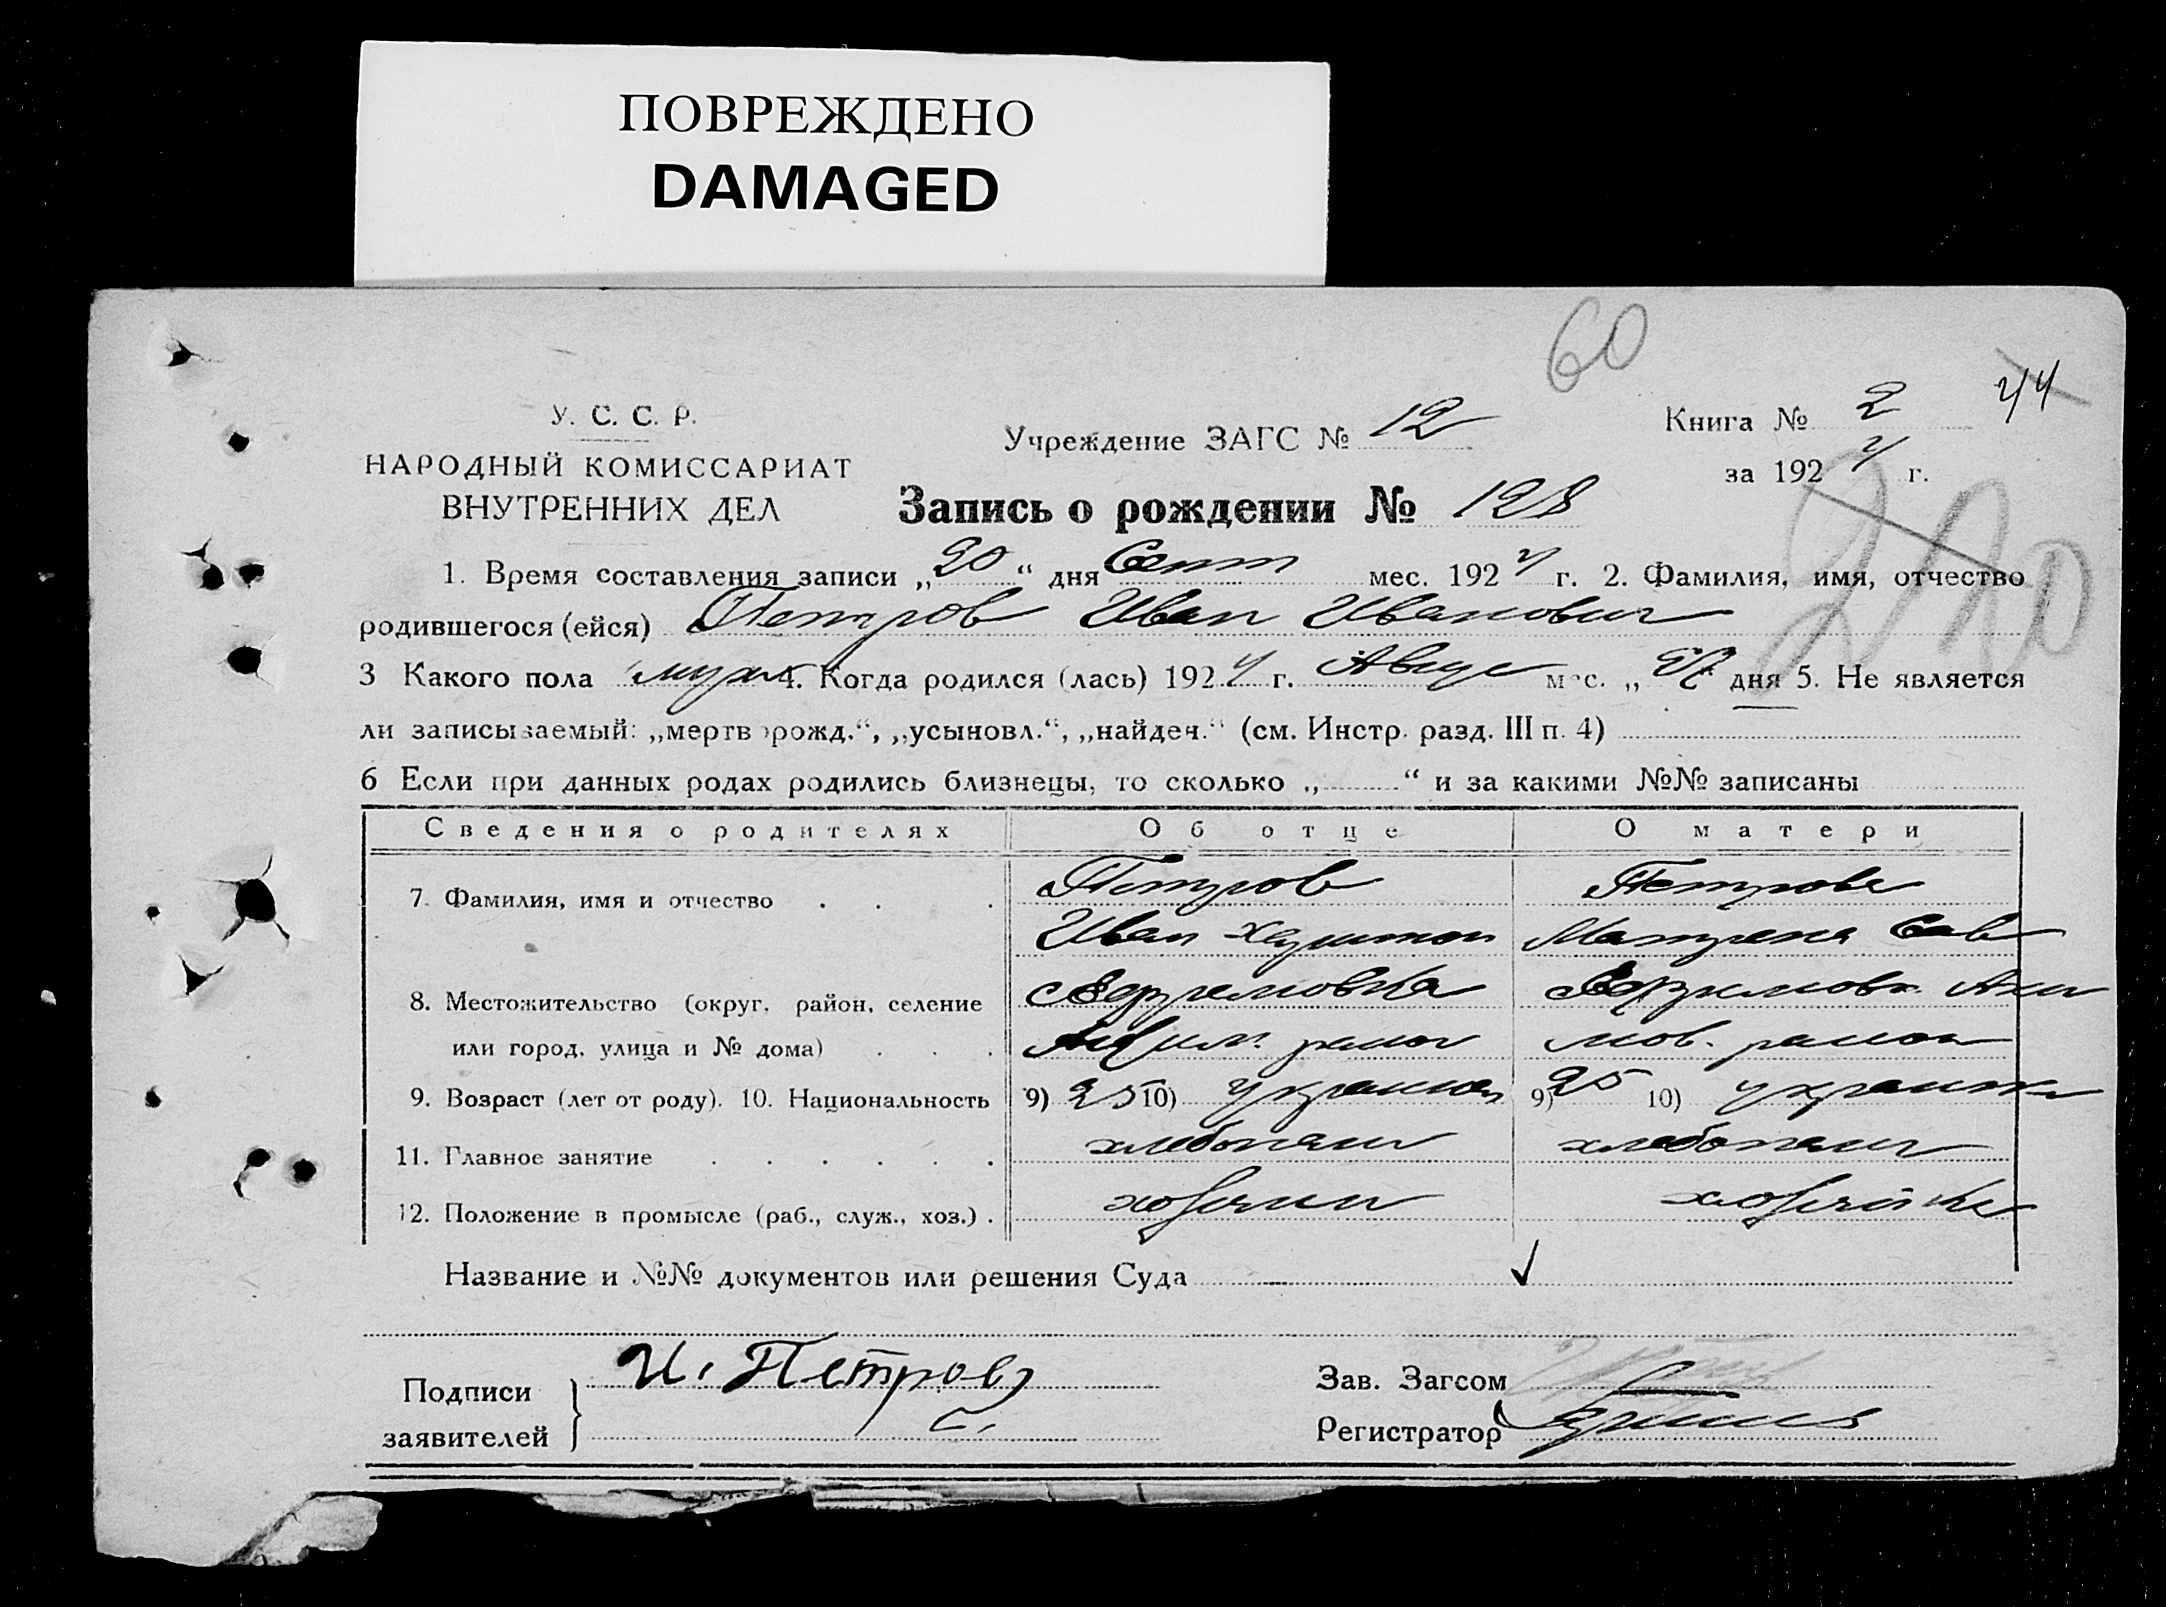 ПОВРЕЖДЕНО
DAMAGED
60
У. С. С. Р.
НАРОДНЫЙ КОМИССАРИАТ
ВНУТРЕННИХ ДЕЛ
Учреждение ЗАГС № 12
Книга № 2
44
за 192 4 г.
Запись о рождении № 128
210
1. Время составления записи „20“ дня Сент мес. 192 4 г. 2. Фамилия, имя, отчество
родившегося (ейся) Петров Иван Иванович
3 Какого пола муж 4. Когда родился (лась) 192 4 г. Авгус мес. „ дня 5. Не является
ли записываемый: „мертворожд.“, „усыновл.“, „найден.“ (см. Инстр. разд. III п. 4)
6 Если при данных родах родились близнецы, то сколько „ “ и за какими №№ записаны
Сведения о родителях Об отце О матери
7. Фамилия, имя и отчество . . . Петров Петрова
Иван Матрена Сав
8. Местожительство (округ, район, селение с Ефремовка Аки
или город, улица и № дома) . . . район мов. район
9. Возраст (лет от роду). 10. Национальность 9) 25 10) украинец 9) 25 10) украинка
11. Главное занятие . . . . . . хлебопаш хлебопаш
12. Положение в промысле (раб., служ., хоз.) . хозяин хозяйка
Название и №№ документов или решения Суда
Подписи
заявителей
И. Петров
Зав. Загсом
Регистратор